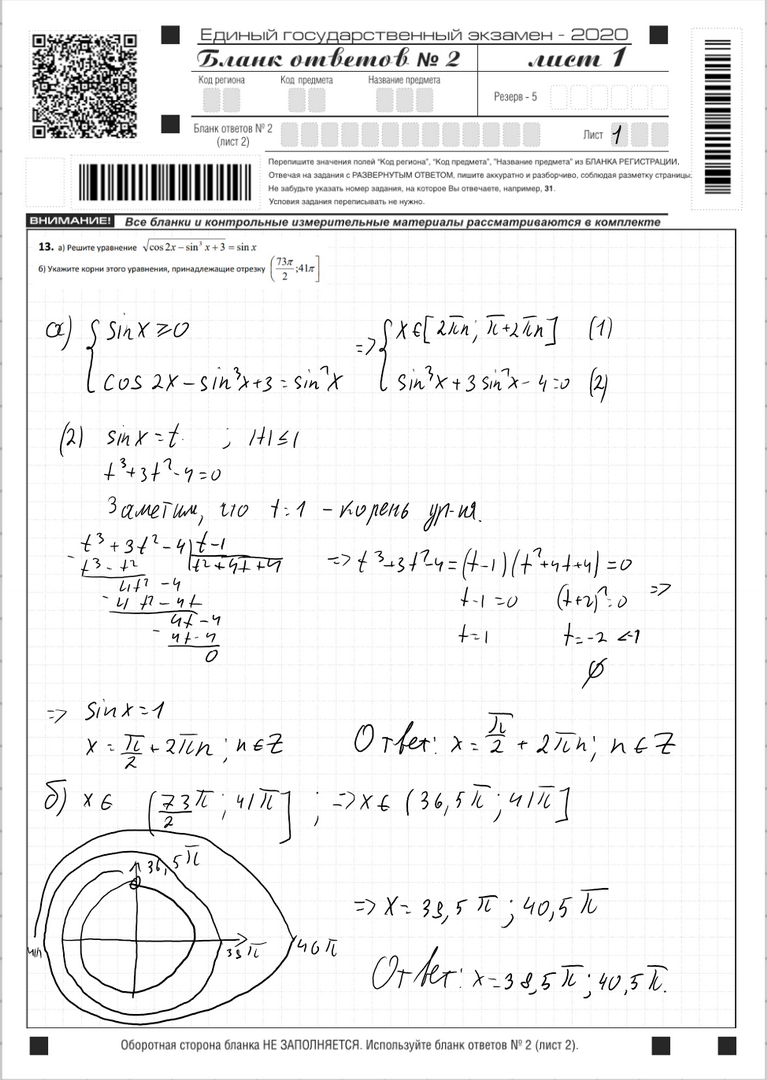 Единый государственный экзамен - 2020
Бланк ответов № 2 лист 1
Код региона Код предмета Название предмета
Резерв - 5
Бланк ответов № 2 (лист 2)
Лист 1
Перепишите значения полей "Код региона", "Код предмета", "Название предмета" из БЛАНКА РЕГИСТРАЦИИ.
Отвечая на задания с РАЗВЕРНУТЫМ ОТВЕТОМ, пишите аккуратно и разборчиво, соблюдая разметку страницы.
Не забудьте указать номер задания, на которое Вы отвечаете, например, 31.
Условия задания переписывать не нужно.
ВНИМАНИЕ! Все бланки и контрольные измерительные материалы рассматриваются в комплекте
13. а) Решите уравнение √(cos 2x − sin³ x + 3) = sin x
б) Укажите корни этого уравнения, принадлежащие отрезку (73π/2; 41π]
а) { sin x ≥ 0 => { x ∈ [2πn; π+2πn] (1)
{ cos 2x − sin³x + 3 = sin²x { sin³x + 3 sin²x − 4 = 0 (2)
(2) sin x = t ; |t| ≤ 1
t³+3t²-4=0
Заметим, что t=1 - корень ур-ия.
t³ + 3t² - 4 | t-1
t³ - t² | t²+4t+4
4t² - 4
4t² - 4t
4t - 4
4t - 4
0
=> t³+3t²-4 = (t-1)(t²+4t+4) = 0
t-1=0 (t+2)²=0 =>
t=1 t=-2 <-1
∅
=> sin x = 1
x = π/2 + 2πn ; n ∈ Z
Ответ: x = π/2 + 2πn; n ∈ Z
б) x ∈ (73π/2 ; 41π] ; => x ∈ (36,5π ; 41π]
36,5π
41π
39π
40π
=> x = 38,5π ; 40,5π
Ответ: x = 38,5π; 40,5π.
Оборотная сторона бланка НЕ ЗАПОЛНЯЕТСЯ. Используйте бланк ответов № 2 (лист 2).